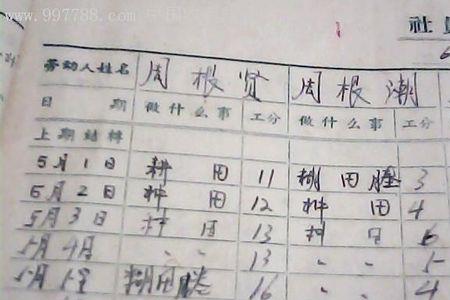 www.997788.com 中国
社
劳动人姓名 周根贤 周根潮
日 期 做什么事 工分 做什么事 工分
上期结转
5月1日 耕田 11 糊田塍 3
5月2日 耕田 12 耕田 4
5月3日 耕田 13 耕田 6
5月4日 〃 〃 13 〃 〃 5
5月5日 糊田塍 16 〃 〃 4